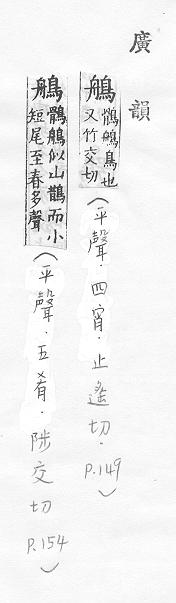 廣韻
鵃鶻鵃鳥也又竹交切(平聲.四宵.止遙切.P.149)
鵃鶻鵃似山鵲而小短尾至春多聲(平聲.五肴.陟交切P.154)